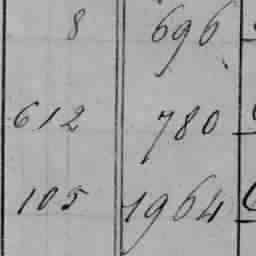 8 696
612 780
105 1964